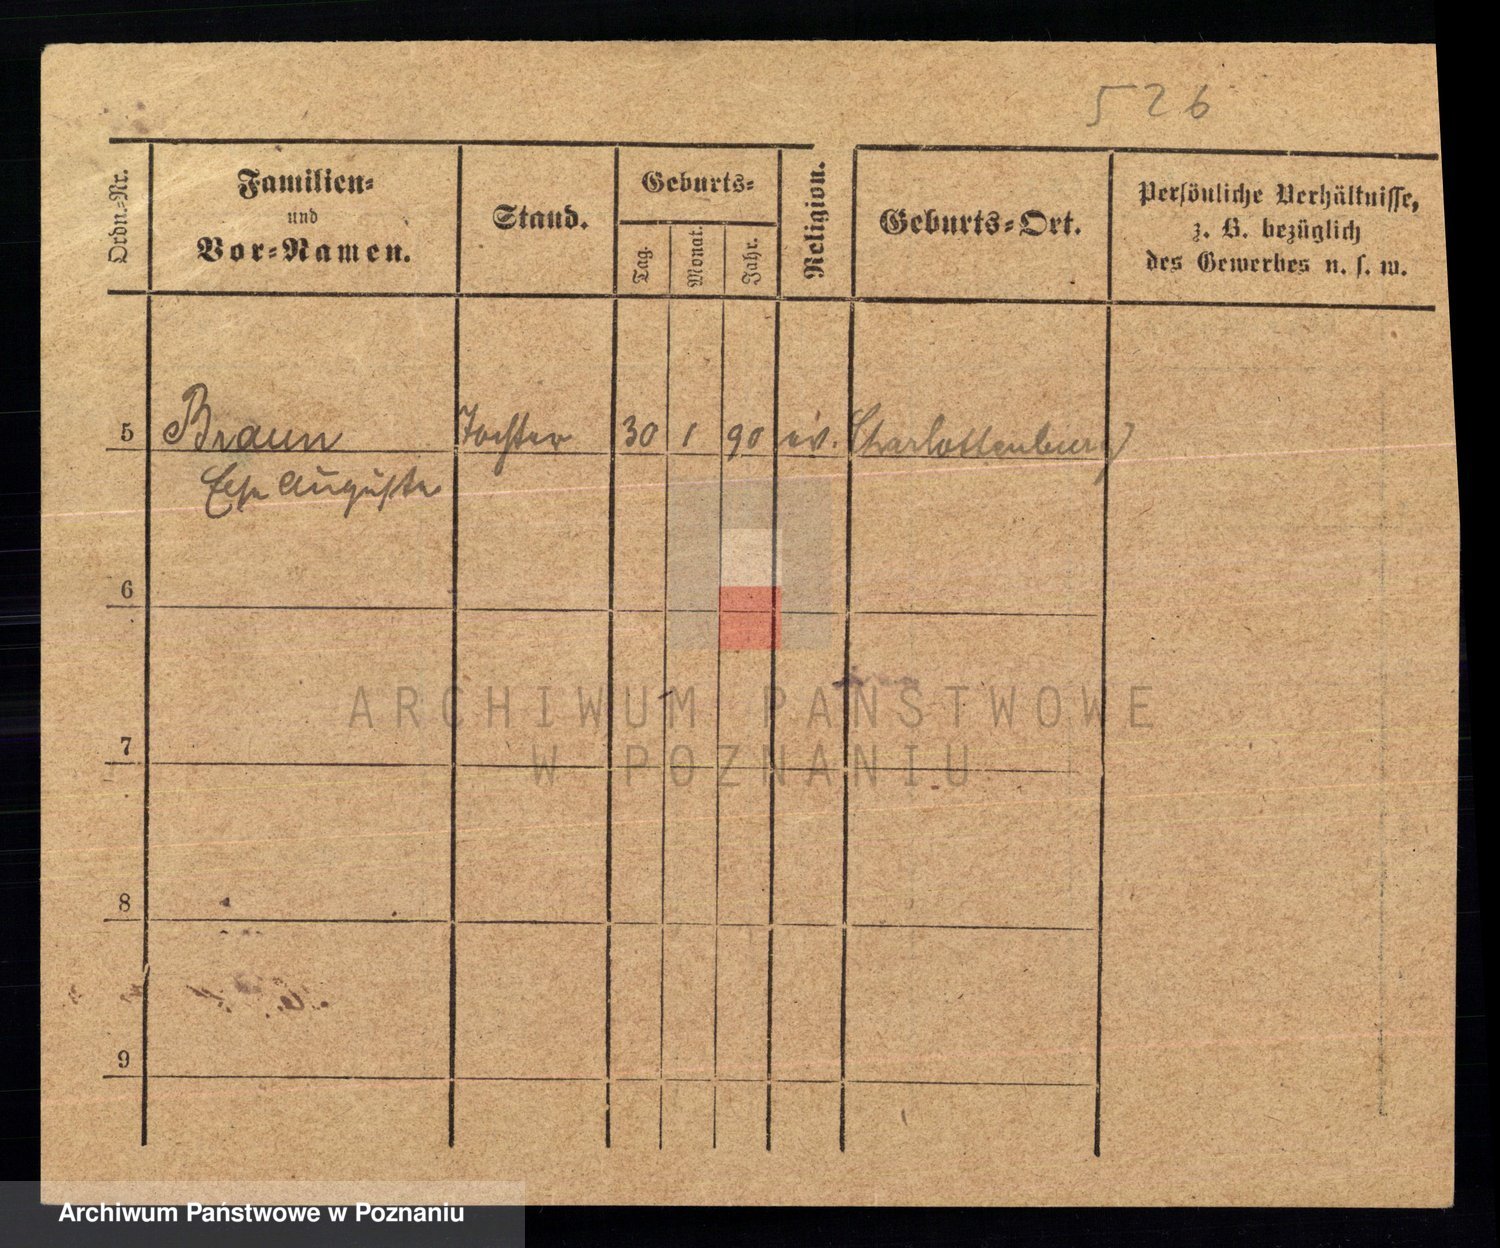 526
Ordn.-Nr.
Familien-
und
Vor-Namen.
Stand.
Geburts-
Tag.
Monat.
Jahr.
Religion.
Geburts-Ort.
Persönliche Verhältnisse,
z. B. bezüglich
des Gewerbes u. s. w.
5 Braun Tochter 30 1 90 ev. Charlottenburg
Auguste
6
7
8
9
ARCHIWUM PAŃSTWOWE
W POZNANIU
Archiwum Państwowe w Poznaniu